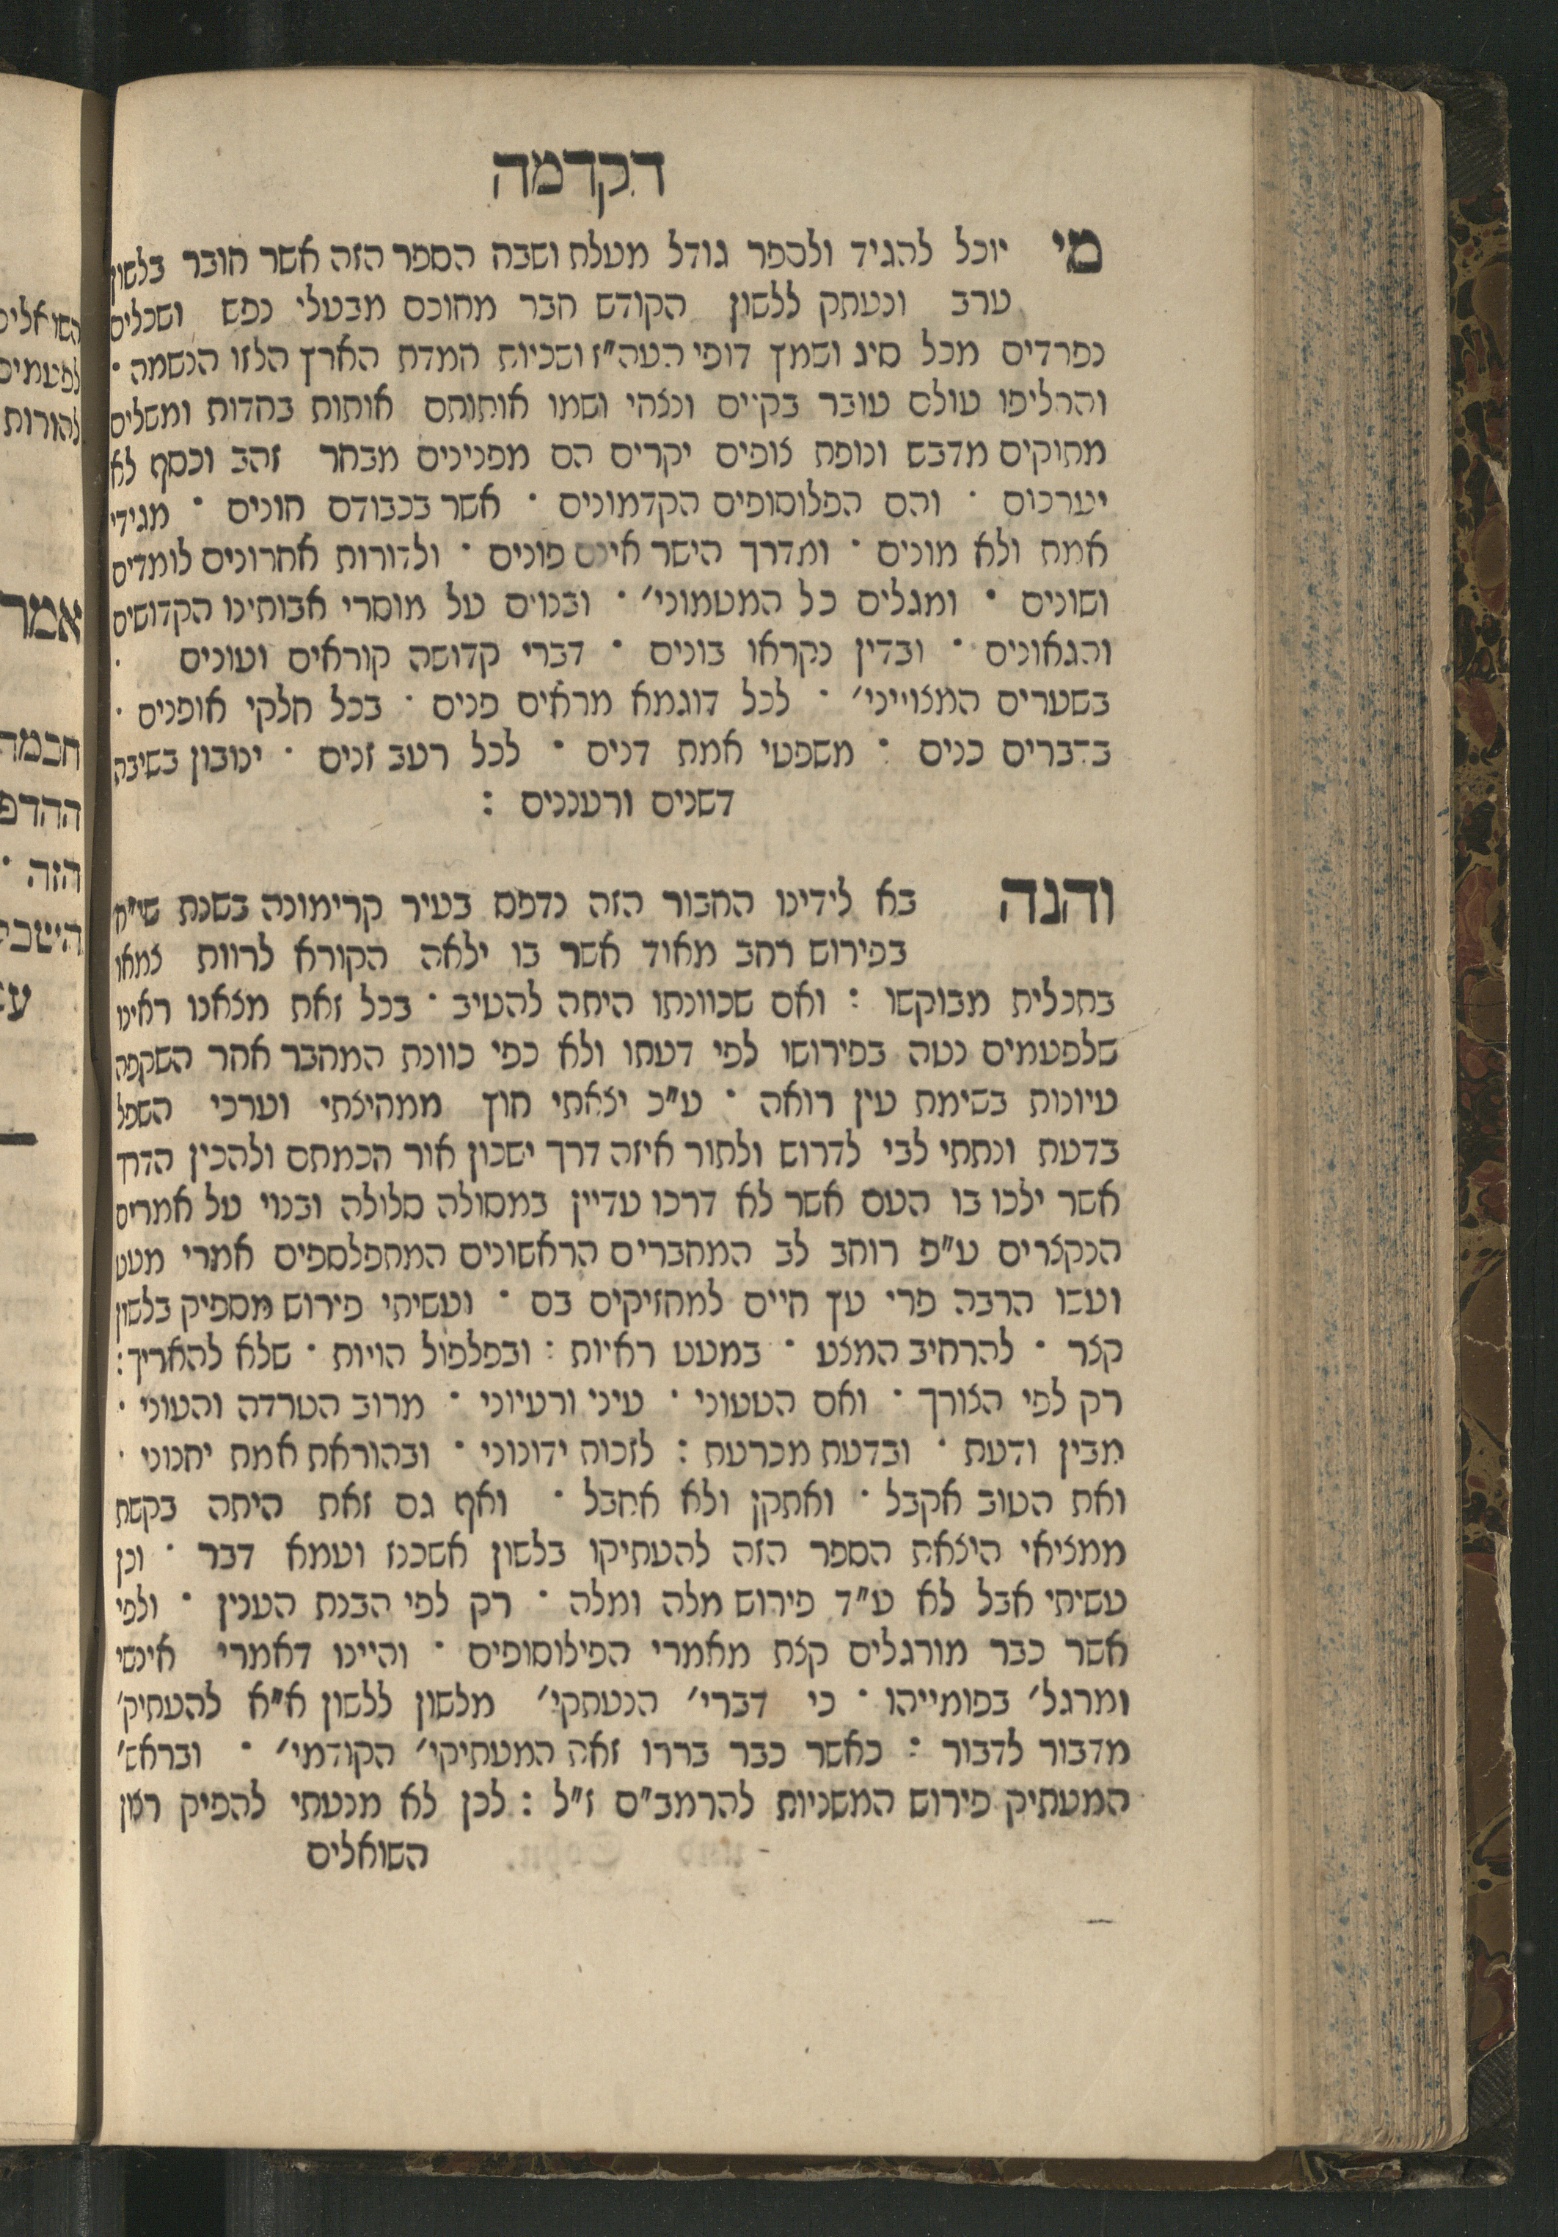 הקדמה
מי יוכל להגיד ולספר גודל מעלת ושבח הספר הזה אשר חובר בלשון
ערב ונעתק ללשון הקודש חבר מחוכם מבעלי נפש ושכלים
נפרדים מכל סיג ושמץ דופי העה"ז ושכיות חמדת הארץ הלזו הנשמה ·
והחליפו עולם עובר בקיים ונצחי ושמו אותותם אותות בחדות ומשלים
מתוקים מדבש ונופת צופים יקרים הם מפנינים מבחר זהב וכסף לא
יערכום · והם הפלוסופים הקדמונים · אשר בכבודם חונים · מגידי
אמת ולא מונים · ומדרך הישר אינם פונים · ולדורות אחרונים לומדים
ושונים · ומגלים כל המטמוני' · ובנוים על מוסרי אבותינו הקדושים
והגאונים · ובדין נקראו בונים · דברי קדושה קוראים ועונים ·
בשערים המצויינ' · לכל דוגמא מראים פנים · בכל חלקי אופנים ·
בדברים כנים · משפטי אמת דנים · לכל רעב זנים · ינובון בשיבה
דשנים ורעננים :
והנה בא לידינו החבור הזה נדפס בעיר קרימונה בשנת שי"ח
בפירוש רחב מאוד אשר בו ילאה הקורא לרוות צמאו
בתכלית מבוקשו : ואם שכוונתו היתה להטיב · בכל זאת מצאנו ראינו
שלפעמים נטה בפירושו לפי דעתו ולא כפי כוונת המחבר אחר השקפה
עיונות בשימת עין רואה · ע"כ יצאתי חוץ ממחיצתי וערכי השפל
בדעת ונתתי לבי לדרוש ולתור איזה דרך ישכון אור חכמתם ולהכין הדרך
אשר ילכו בו העם אשר לא דרכו עדיין במסולה סלולה ובנוי על אמרים
הנקצרים ע"פ רוחב לב המחברים הראשונים המתפלספים אמרי מעט
ועשו הרבה פרי עץ חיים למחזיקים בם · ועשיתי פירוש מספיק בלשון
קצר · להרחיב המצע · במעט ראיות : ובפלפול הויות · שלא להאריך :
רק לפי הצורך · ואם הטעוני · עיני ורעיוני · מרוב הטרדה והעוני ·
מבין ודעת · ובדעת מכרעת : לזכות ידונוני · ובהוראת אמת יחנוני ·
ואת הטוב אקבל · ואתקן ולא אחבל · ואף גם זאת היתה בקשת
ממציאי היצאת הספר הזה להעתיקו בלשון אשכנז ועמא דבר · וכן
עשיתי אבל לא ע"ד פירוש מלה ומלה · רק לפי הבנת הענין · ולפי
אשר כבר מורגלים קצת מאמרי הפילוסופים · והיינו דאמרי אינשי
ומרגל' בפומייהו · כי דברי' הנעתקי' מלשון ללשון א"א להעתיק'
מדבור לדבור : כאשר כבר בררו זאת המעתיקי' הקודמי' · ובראש'
המעתיק פירוש המשניות להרמב"ם ז"ל : לכן לא מנעתי להפיק רצון
השואלים
השואלים
לפעמים
להורות
אמר
חכמה
הזה ·